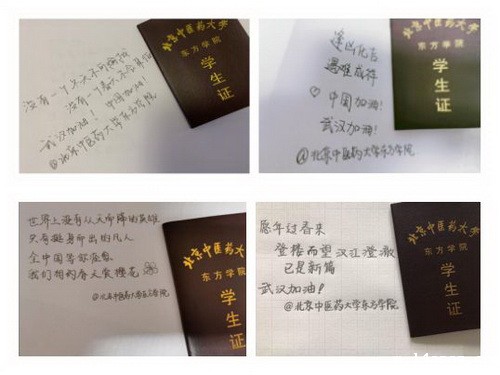 没有一个冬天不可逾越
没有一个春天不会来临
武汉加油! 中国加油!
@北京中医药大学东方学院
北京中医药大学
东方学院
学生证
逢凶化吉
遇难成祥
♡中国加油!
武汉加油!
@北京中医药大学东方学院
北京中医药大学
东方学院
学生证
世界上没有从天而降的英雄
只有挺身而出的凡人
全中国等你痊愈
我们相约春天赏樱花
@北京中医药大学东方学院
北京中医药大
东方学院
学生证
愿年过春来
登楼而望 汉江澄澈
已是新篇
武汉加油!
@北京中医药大学东方学院
北京中医药大
东方学院
学生证